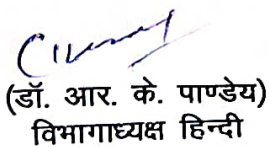 (डॉ. आर. के. पाण्डेय)
विभागाध्यक्ष हिन्दी